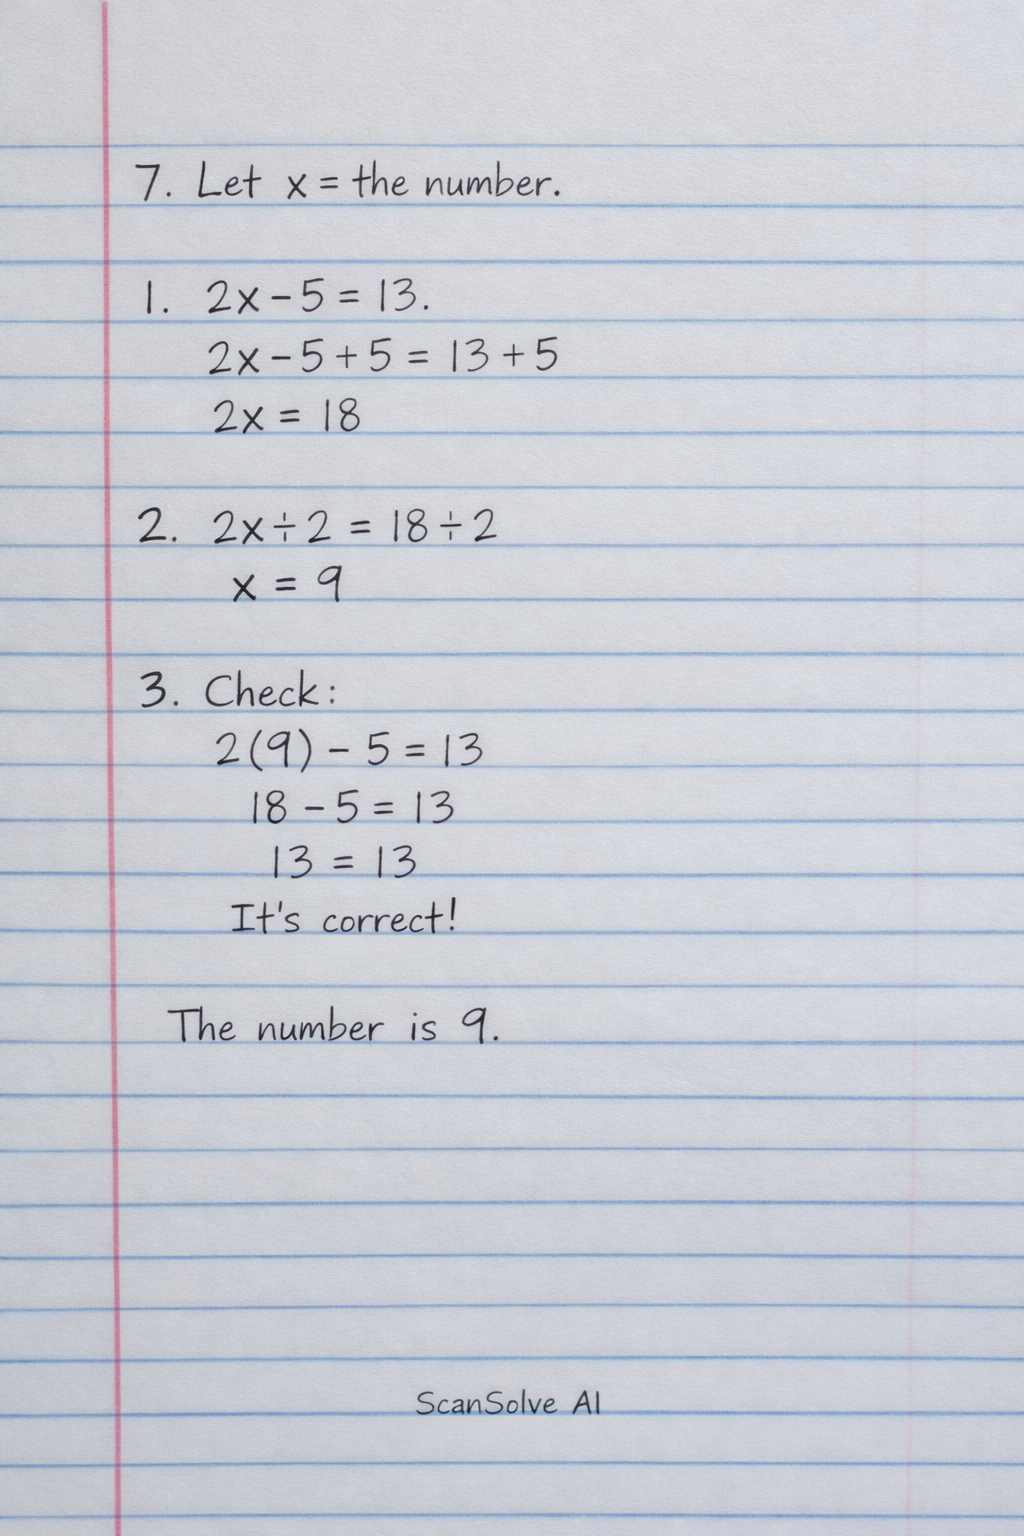 7. Let x = the number.
1. 2x - 5 = 13.
2x - 5 + 5 = 13 + 5
2x = 18
2. 2x ÷ 2 = 18 ÷ 2
x = 9
3. Check:
2(9) - 5 = 13
18 - 5 = 13
13 = 13
It's correct!
The number is 9.
ScanSolve AI